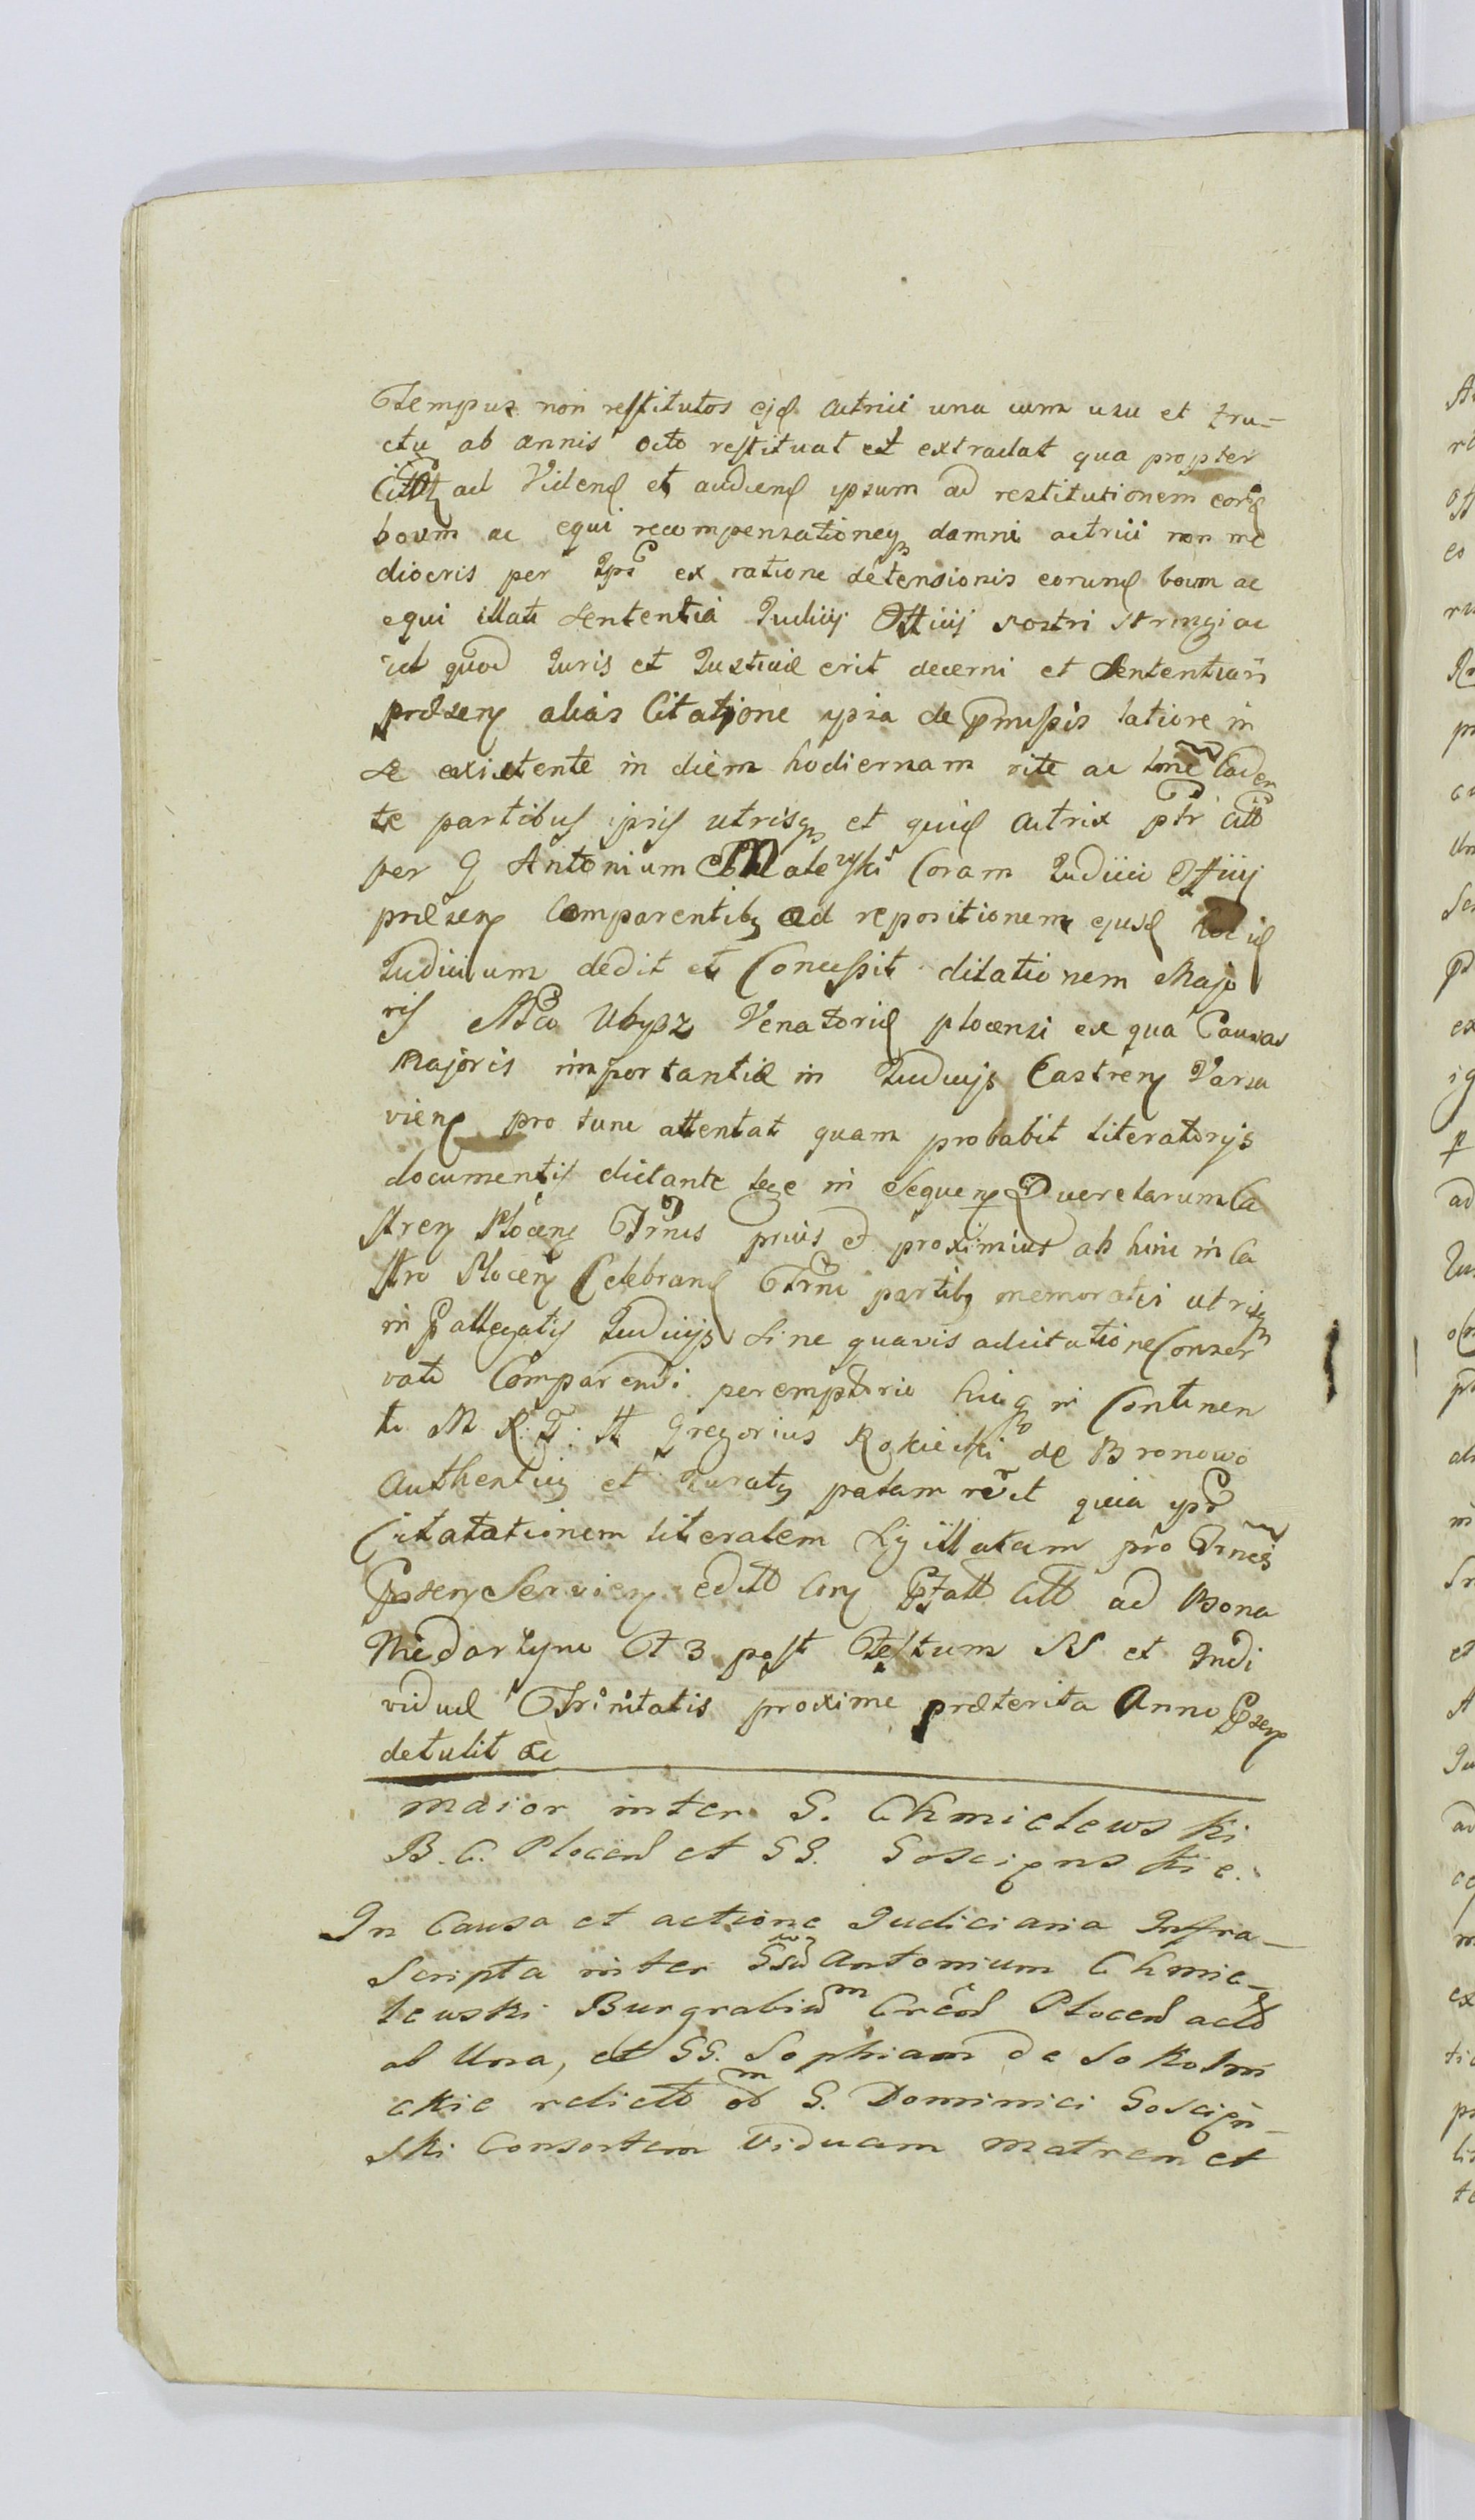 tempus non restitutos ejd actrici una cum usu et fru-
ctu ab annis octo restituat et extradat qua propter
Citt ad Vidend et audiend ipsum ad restitutionem eord
boum ac equi recompensationeqz damni actrici non me
diocris per Ips ex ratione detensionis eorund boum ac
equi illati Sententia Judicij Officij nostri stringi ac
id quod Juris et Justitiæ erit decerni et Sententiari
præsen alias Citatione ipsa de pmissis latiore in
se existente in diem hodiernam rite ac tme Caden
te partibus ipsis utrisqz et quid actrix ptr citt
per G Antonium Malewski Coram Judicio Officij
præsen Comparentibz ad repositionem ejusd
Judicium dedit et Concessit dilationem Majo
ris Mco Ubysz Venatoria plocensi ex qua Causas
Majoris importantiæ in Judicijs Castren Varsa
vien pro tunc attentat quam probabit literatorijs
documentis dictante lege in Sequen Querelarum Ca
stren Plocen Trnis prius et proximius ab hinc in Ca
stro Plocen Celebrand Trni partibz memoratis utrisqz
in pallegatis Judicijs Sine quavis adcitatione Conser
vato Comparendi peremptorie huic in Continen
ti M R: T: A Gregorius Rokicki de Bronowo
Authenticus et Juratg palam recit quia ips
Citatationem literalem Sigillatam pro Trnis
Psen Servien editt Con Ptatt Citt ad Bona
Niedarzyno A 3 post Festum SS et Indi
viduæ Trinitatis proxime præterita Anno Psen
detulit &c
Maior inter G. Chmielewski
B. C. Plocen et GG. Goscignskie.
In Causa et actione Judiciaria Infra-
Scripta inter Gsu Antonium Chmie-
lewski Burgrabium Cren Plocen act
ab Una, et GG. Sophiam de Sokolni
ckie relict G. Dominici Goscign-
ski Consortem Viduam Matrem et